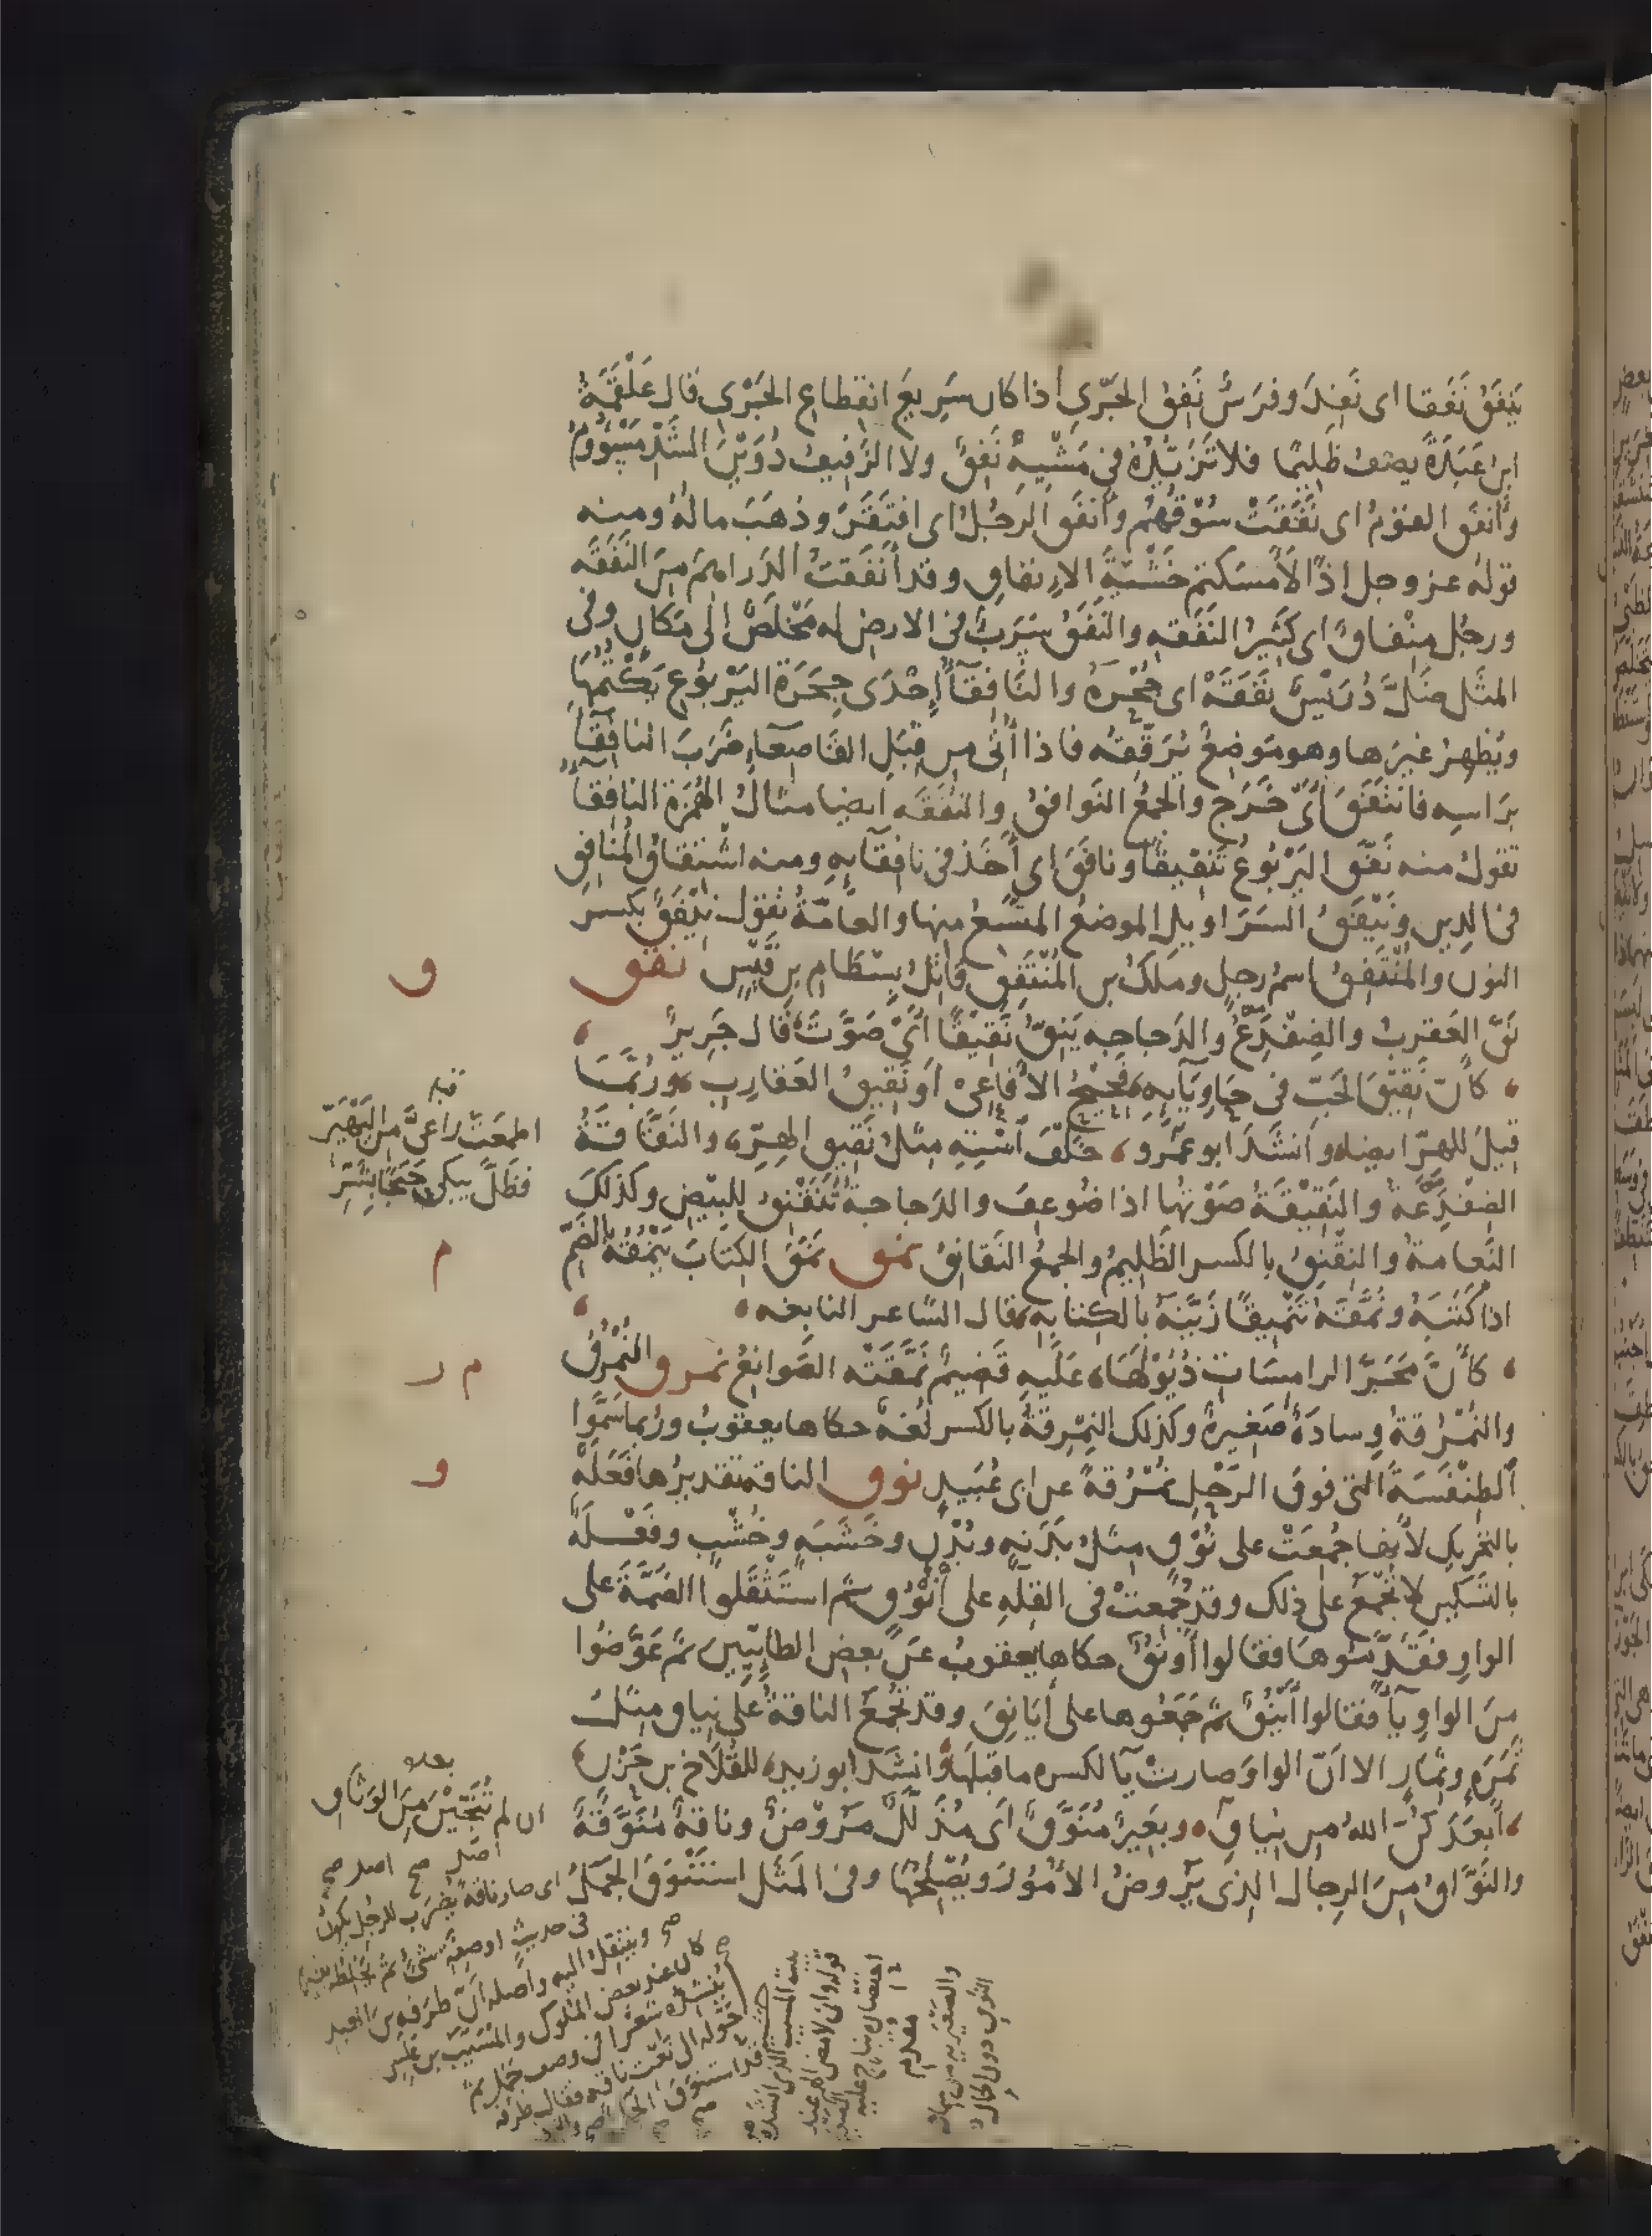 يَنفَقُ نَفَقا اى نَفِدَ وفرَسٌ نَفِقُ الجَرْىِ اذا كان سَرِيعَ انقِطاعِ الجَرْىِ قال عَلْقَمَةُ
ابن عَبَدَةَ يصف ظَلِيمًا فلا تَزَيُّدُهُ فى مَشْيِهِ نَفِقٌ ولا الزَفِيفُ دُوَيْنَ الشَّدِّ مَسْؤُومُ
وأنفَقَ القَوْمُ اى نَفَقَتْ سُوقُهُم وأنفَقَ الرَجُلُ اى افتَقَرَ وذهَبَ مالُهُ ومنه
قولهُ عز وجل اذًا لَأمسَكتم خَشْيَةَ الإنفاقِ وقد أنفَقتُ الدَراهِمَ مِنَ النَفَقَه
ورجُل مِنْفاقٌ اى كَثِيرُ النَفَقه والنَفَقُ سَرَبٌ فى الارض له مَخْلَصٌ الى مَكانٍ وفى
المثَل ضَلَّ دُرَيْصٌ نَفَقَهْ اى جُحْرَهُ والنَافِقَآءُ إحْدَى جِحَرَةِ اليَرْبُوعِ يَكْتُمُهَا
ويُظهِرُ غيرَها وهو مَوضِعٌ يُرَقِّقُه فاذا أُتِىَ مِن قِبَلِ القَاصِعَآءِ ضَرَبَ النافِقَآءَ
بَراسِه فانتَفَقَ أىْ خَرَج والجمعُ النَوافقُ والنُفَقَه ايضا مثالُ الهُمَزَة النافِقَآءُ
تقولُ منه نَفَّقَ اليَرْبُوعُ تَنفِيقًا ونافَقَ اى أخَذَ فى نافِقَآئِهِ ومنه اشتقاقُ المُنافِقِ
فى الدِينِ ونَيْفَقُ السَرَاوِيلِ الموضعُ المتَّسَعُ منها والعامّةُ تقول نِيْفَقُ بكسر
النون والمُنْتَفِقُ اسمُ رجلٍ وملكُ بن المُنْتَفِقِ قاتِلُ بِسْطَامِ بنِ قَيْسٍ نقق
ق
نَقَّ العَقرَبُ والضِفْدَعُ والدَجاجه يَنِقُّ نَقِيقًا أىْ صَوَّتَ قال جَرِيرٌ
كأنّ نَقِيقَ الحَبّ فى حَاوِيَآئِهِ فَحِيحُ الأفاعِى أو نَقِيقُ العَقارِبِ ورُبَّمَا
قِيلَ للهِرّ ايضا وأنشَدَ ابو عَمْرو خَلْفَ آسْتِهِ مِثلُ نَقِيقِ الهِرِّ والنَقَّاقَةُ
قبله
اطعَمتُ راعِىَّ من اليَهْيَرِّ
فظَلَّ يبكى حَبَجًا بِشَرِّ
الضِفْدَعَةُ والنَقْنَقَةُ صَوْتُها اذا ضُوعِفَ والدَجاجةُ تُنَقْنِقُ للبَيْضِ وكذلك
النَعامةُ والنِقْنِقُ بالكسر الظَلِيمُ والجمعُ النَقانِقُ نمق نَمَقَ الكِتابَ يَنْمُقُهُ بالضَمّ
م
اذا كَتَبَهُ ونَمَّقَهُ تَنْمِيقًا زَيَّنَهُ بالكِتابِهِ قال الشاعر النابغه
كأنَّ مَجَرَّ الرامِسَاتِ ذُيُولَهَا عَلَيهِ قَضِيمٌ نَمَّقَتْه الصَوانِعُ نمرق النُمْرُقُ
م ر
والنُمْرُقةُ وِسادَةٌ صَغِيرةٌ وكذلك النِمْرِقةُ بالكسر لُغةٌ حكاها يعقوبُ ورُبما سَمَّوا
الطِنْفَسَةَ التى فوقَ الرَحْلِ نُمْرُقةً عن ابى عُبَيدٍ نوق الناقة تقديرُها فَعَلَةٌ
و
بالتحريكِ لأنها جُمِعَتْ على نُوقٍ مِثلُ بَدَنةٍ وبُدْنٍ وخَشَبَةٍ وخُشْبٍ وفَعْلَةٌ
بالتَسكِينِ لا تُجْمَعُ على ذلك وقد جُمِعتْ فى القِلّةِ على أَنْوُقٍ ثم استَثقَلوا الضَمّةَ على
الواوِ فقَدَّموها فقالوا أَوْنُقٌ حكاها يعقوبُ عَن بعضِ الطائِيِّينَ ثم عَوَّضُوا
مِنَ الواوِ يآءً فقالوا أَيْنُقٌ ثم جَمَعُوها على أيَانِقَ وقد تُجْمَعُ الناقةُ على نِياقٍ مِثلُ
ثَمَرَةٍ وثِمَارٍ الا انّ الواوَ صارتْ يآءً لكسره ما قبلَها وأنشَدَ ابو زيدٍ للقُلَاخِ بن حَزْنٍ
أبعَدَكُنَّ اللهُ مِن نِيَاقٍ وبَعِيرٌ مُنَوَّقٌ اى مُذَلَّلٌ مَرُوضٌ وناقةٌ مُنَوَّقَةٌ
بعده
ان لم تُنَجِّيْنَ مِنَ الوَثَاقِ
والنَوَّاقُ مِنَ الرِجالِ الذى يَرُوضُ الأمُورَ ويُصْلِحُها وفى المَثَلِ استَنْوَقَ الجَمَلُ
اى صار ناقةً يُضرَب للرجُل يكون
فى حديثٍ او صِفةِ شىءٍ ثم يَخلِطُه بغيره
وينتقِلُ اليه وأصلهُ أنّ طرَفه بن العبد
كان عند بعض الملوك والمُسَيَّب بن عَلَس
يُنشِدُه شعرًا فى وصف جَمَلٍ ثم
حَوَّله الى نَعْت ناقه فقال طرَفه
قد استنوَقَ الجمل